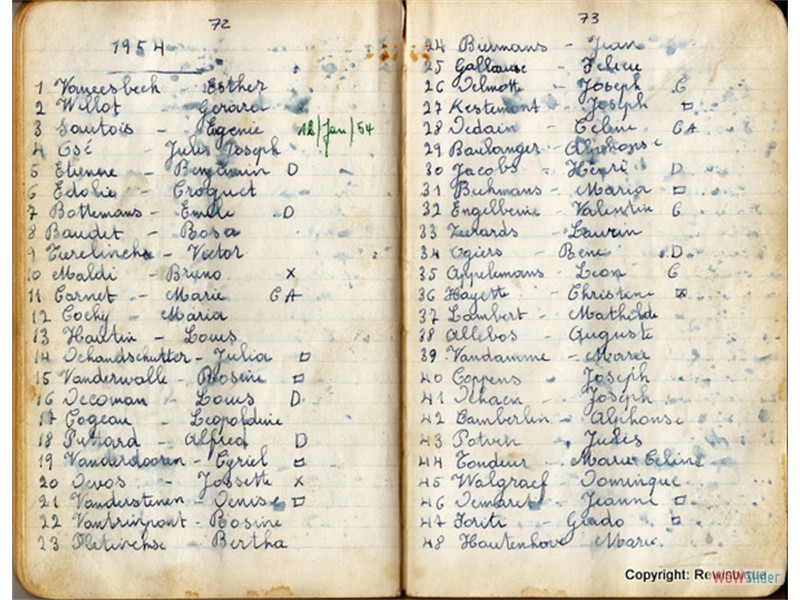 72
1954
1 Vaneesbeek Esther
2 Willot Gerard
3 Sautois - Egenie 12/Jan/54
4 Osé - Jules Joseph
5 Etienne - Benjamin D
6 Edolie - Croquet
7 Bottemans - Emile D
8 Baudet - Rosa
9 Terelincks - Victor
10 Maldi - Bruno X
11 Carnet - Marie C A
12 Cochy - Maria
13 Hautin - Louis
14 Schandschutter - Julia □
15 Vanderwalle - Rosine □
16 Decoman - Louis D
17 Cogeau - Leopoldine
18 Pittard - Alfred D
19 Vanderdooren - Cyriel □
20 Devos - Jossette X
21 Vanderstenen - Denise □
22 Vantrimpont - Rosine
23 Pletinckse Bertha
73
24 Biermans - Jean
25 Felicie
26 Delmotte - Joseph C
27 Kestemont - Joseph □
28 Dedain - Celine C A
29 Boulanger - Alphonse
30 Jacobs - Henri D
31 Beckmans - Maria □
32 Engelbenie - Valentin C
33 - Laurin
34 Ogiers - Rene D
35 Appelemans - Leon C
36 Hayette - Christene
37 Lambert - Mathilde
38 Allebos - Auguste
39 Vandamme - Marie
40 Coppens Joseph
41 Dehaen - Joseph
42 Lamberlin - Alphonse
43 Potvin - Jules
44 Tondeur - Marie Celine
45 Walgraef - Dominique
46 Demaret - Jeanne □
47 Foriti - Giado □
48 Hautenhove Marie
Copyright:
WOWSlider